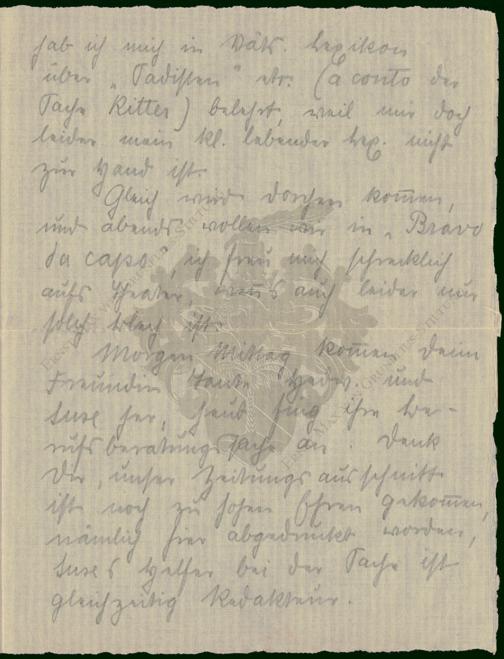 hab ich mich in Väts. Lexikon
über „Sadisten" etc. (a conto der
Sache Ritter) belehrt, weil mir doch
leider mein kl. lebender Lex. nicht
zur Hand ist.
Gleich wird Dorchen kom̄en,
und abends wollen wir in „Bravo
da capo", ich freu mich schrecklich
aufs Theater, wenns auch leider nur
solch Blech ist.
Morgen Mittag kom̄en Deine
Freundin Tante Hedw. und
Suse her, heut fing ihre Be-
rufsberatungssache an. Denk
Dir, unser Zeitungsausschnitt
ist noch zu hohen Ehren gekom̄en,
nämlich hier abgedruckt worden,
Suses Helfer bei der Sache ist
gleichzeitig Redakteur.